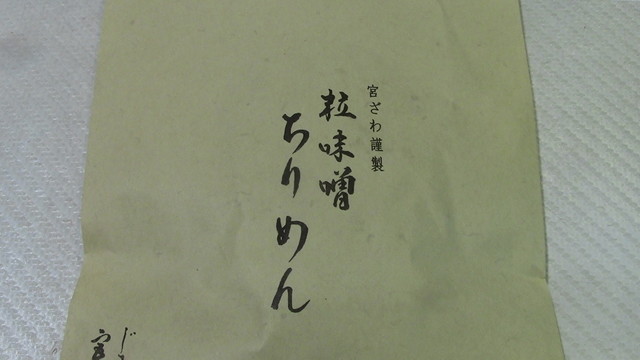 宮ざわ謹製
粒味噌
ちりめん
じき
宮